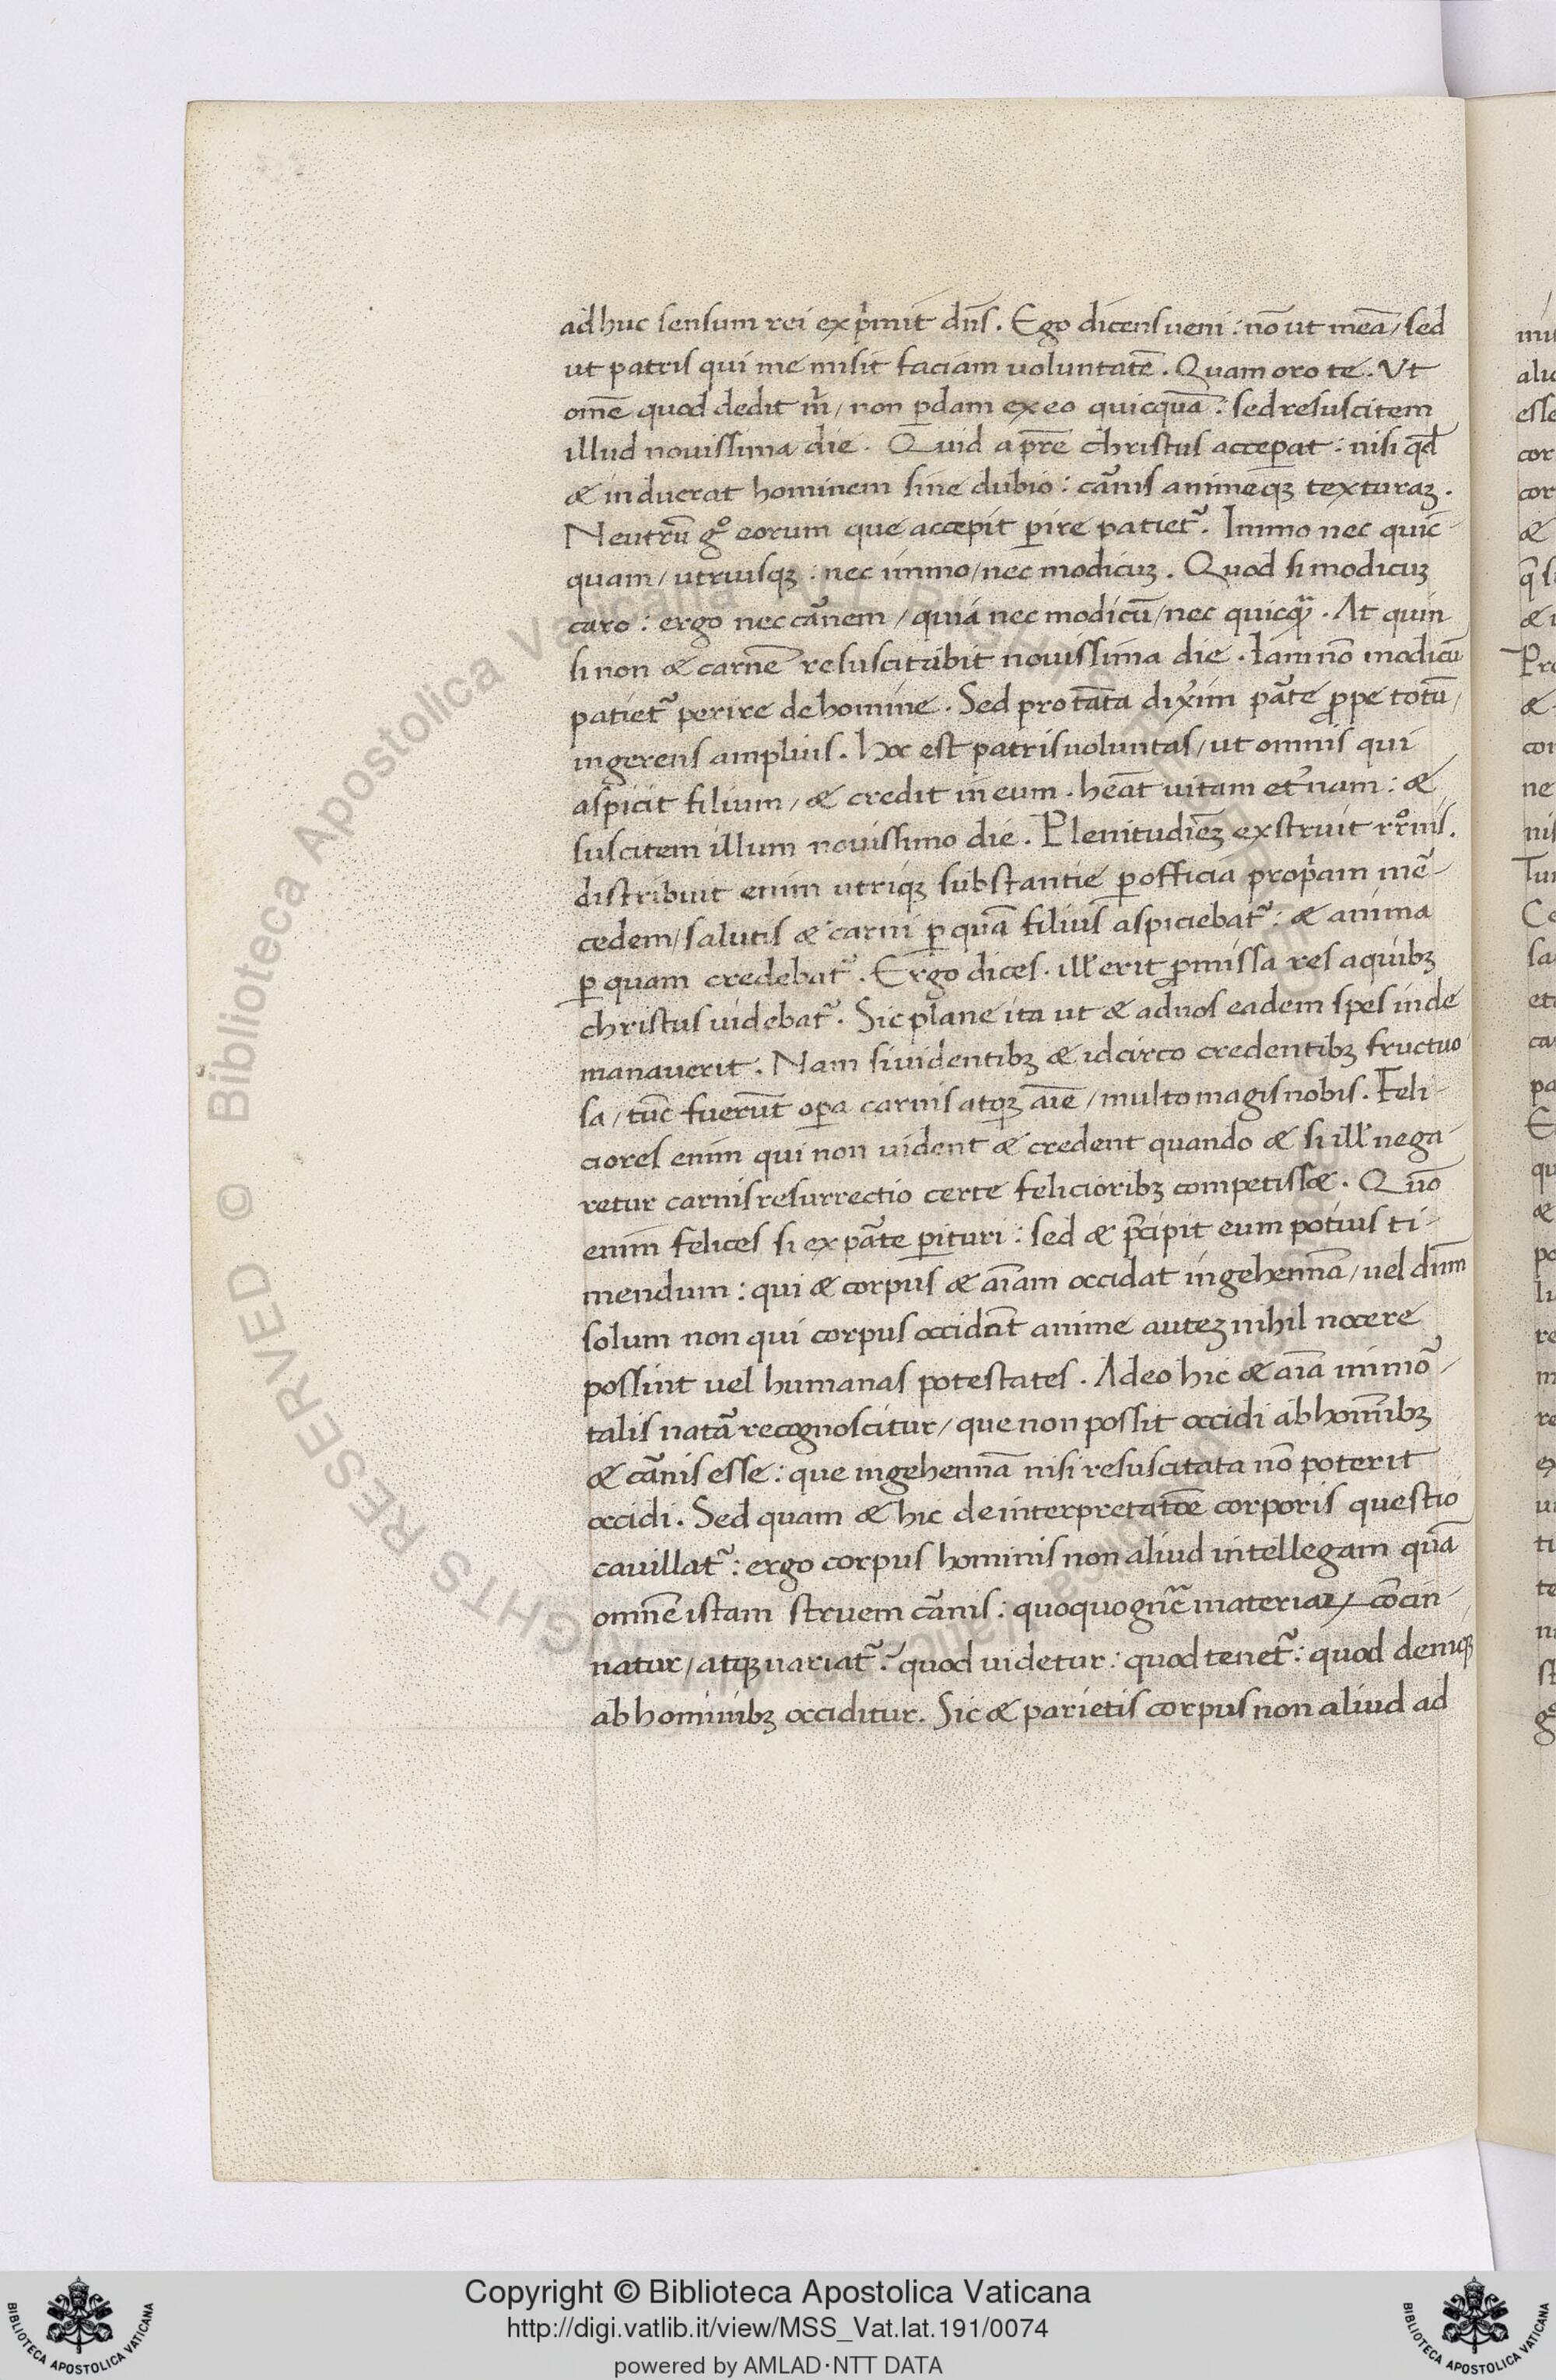 ad huc sensum rei exp̓mit dn̄s. Ego dicens ueni: nō ut meā/ sed
ut patris qui me misit faciam uoluntatē. Quam oro te. Ut
omē quod dedit m̓/ non ꝑdam ex eo quicquā: sed resuscitem
illud nouissima die. Quid a pr̄e christus acceperat: nisi qd̄
& induerat hominem sine dubio: car̄nis animeqꝫ texturaꝫ.
Neutrū g° eorum que accepit ꝑire patiet᷑. Immo nec quic-
quam/ utriusqꝫ: nec immo/ nec modicuꝫ. Quod si modicuꝫ
caro: ergo nec car̄nem/ quia nec modicū/ nec quicq̄. At quin
si non & carnē resuscitabit nouissima die. Iam nō modicū
patiet᷑ perire de homine. Sed pro tāta dix̓im par̄te ꝓpe totū/
ingerens amplius. hoc est patris uoluntas/ ut omnis qui
aspicit filium/ & credit in eum. hēat uitam et̓nam: &
suscitem illum nouissimo die. Plenitudiēꝫ exstruit rr̄onis.
distribuit enim utriqꝫ substantie ꝑ officia prop̓am mer̄-
cedem/ salutis & carni ꝑ quā filius aspiciebat᷑: & anima
ꝑ quam credebat᷑. Ergo dices. ill' erit ꝓmissa res a quibꝫ
christus uidebat᷑. Sic plane ita ut & ad nos eadem spes inde
manauerit. Nam si uidentibꝫ & idcirco credentibꝫ fructuo
sa/ tūc fuerūt oꝑa carnis atqꝫ aīe/ multo magis nobis. Feli-
ciores enim qui non uident & credent quando & si ill' nega-
retur carnis resurrectio certe felicioribꝫ competiss&. Quō
enim felices si ex par̄te ꝑituri: sed & p̄cipit eum potius ti-
mendum: qui & corpus & aīam occidat in gehennā/ uel dn̄m
solum non qui corpus occidāt anime auteꝫ nihil nocere
possint uel humanas potestates. Adeo hic & aīa immor̄-
talis natā recognoscitur/ que non possit occidi ab hom̄ibꝫ
& car̄nis esse: que in gehennā nisi resuscitata nō poterit
occidi. Sed quam & hic de interpretatōe corporis questio
cauillat᷑: ergo corpus hominis non aliud intellegam quā
omnē istam struem car̄nis: quoquo gn̄e materiaꝝ cōcin-
natur/ atqꝫ uariat᷑: quod uidetur: quod tenet᷑: quod deniqꝫ
ab hominibꝫ occiditur. Sic & parietis corpus non aliud ad
Copyright © Biblioteca Apostolica Vaticana
http://digi.vatlib.it/view/MSS_Vat.lat.191/0074
powered by AMLAD·NTT DATA